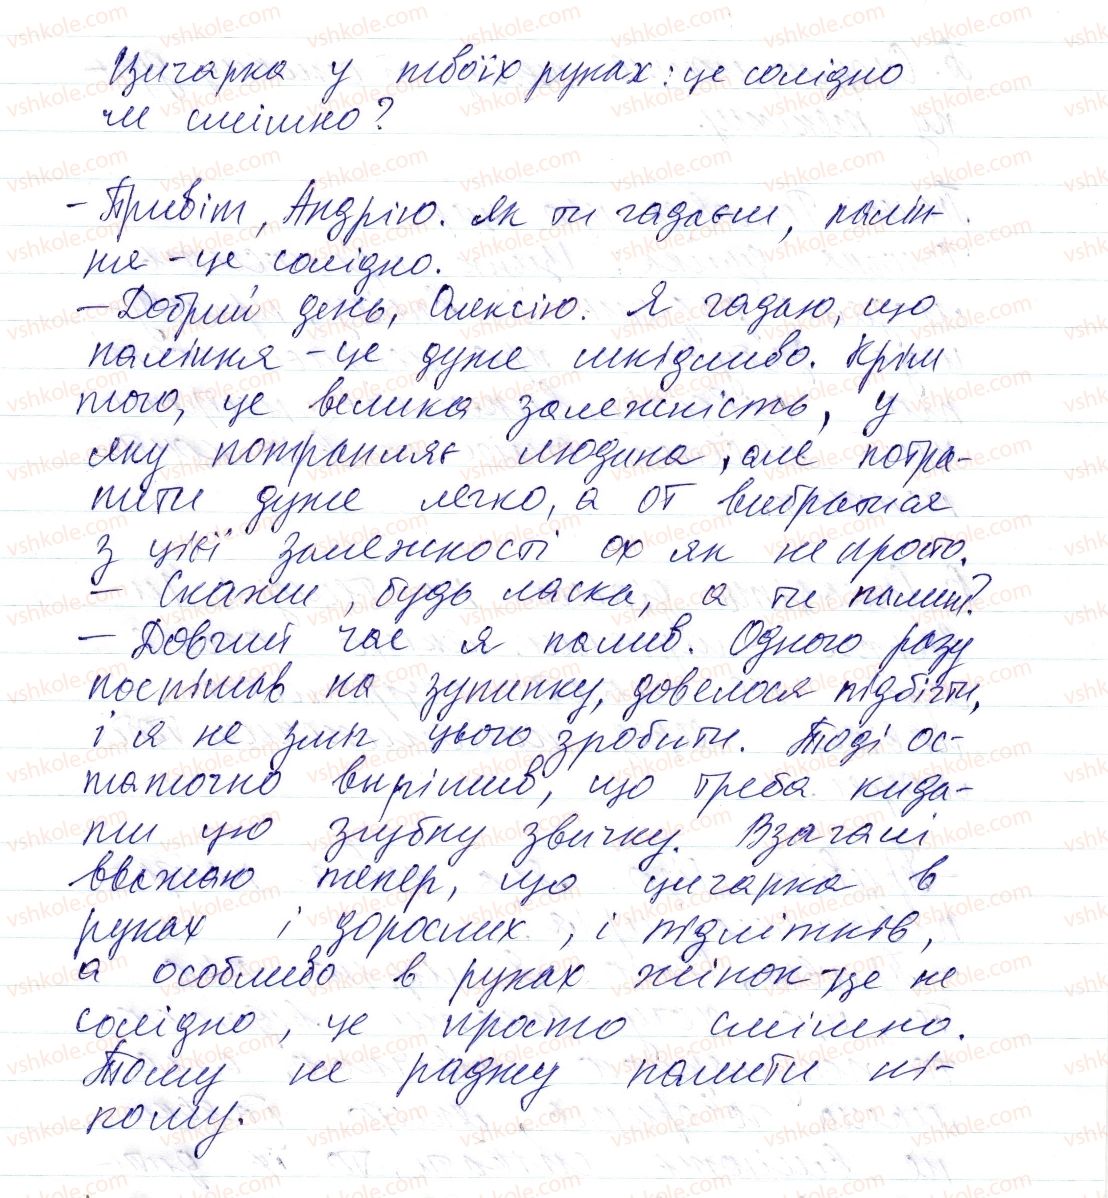 Цигарка у твоїх руках: це солідно
чи смішно?
- Привіт, Андрію. Як ти гадаєш, палін-
ня - це солідно.
- Добрий день, Олексію. Я гадаю, що
паління - це дуже шкідливо. Крім
того, це велика залежність, у
яку потрапляє людина, але потра-
пити дуже легко, а от вибратися
з цієї залежності ох як не просто.
- Скажи, будь ласка, а ти палиш?
- Довгий час я палив. Одного разу
поспішав на зупинку, довелося підбігти,
і я не зміг цього зробити. Тоді ос-
таточно вирішив, що треба кида-
ти цю згубну звичку. Взагалі
вважаю тепер, що цигарка в
руках і дорослих, і підлітків,
а особливо в руках жінок - це не
солідно, це просто смішно.
Тому не раджу палити ні-
кому.